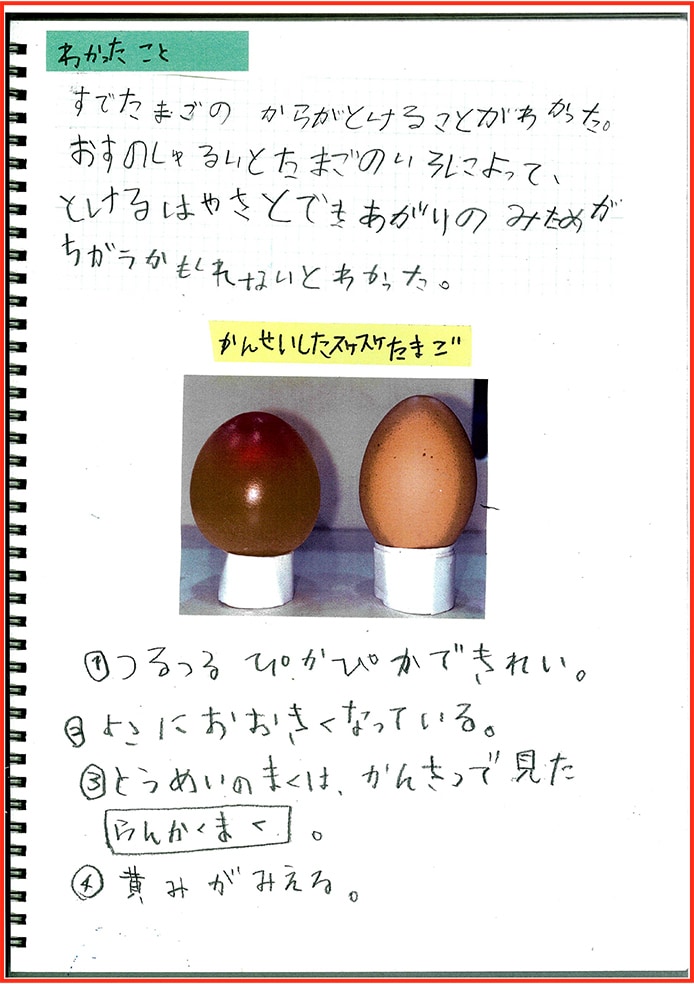 わかったこと
すでたまごの からがとけることがわかった。
おすのしゅるいとたまごのいろによって、
とけるはやさとできあがりの みためが
ちがうかもしれないとわかった。
かんせいしたスケスケたまご
①つるつる ぴかぴかできれい。
②よこにおおきくなっている。
③とうめいのまくは、かんさつで見た
らんかくまく。
④黄みがみえる。